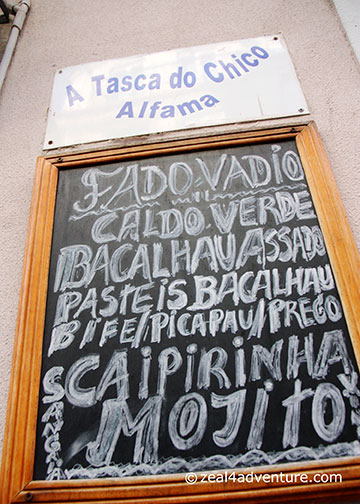 A Tasca do Chico
Alfama
FADO VADIO
CALDO VERDE
BACALHAU ASSADO
PASTEIS BACALHAU
BIFE/PICAPAU/PREGO
CAIPIRINHA
MOJITO
SANGRIA
© zeal4adventure.com